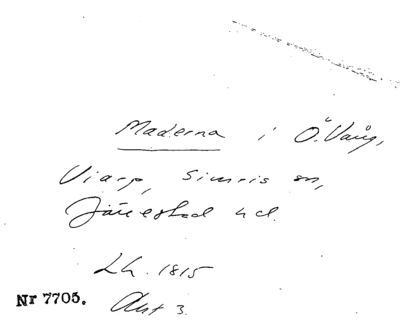 Maderna i Ö. Vång,
Viarp, Simris sn,
Järrestad hd.
Lh. 1815
Nr 7705. Akt 3.